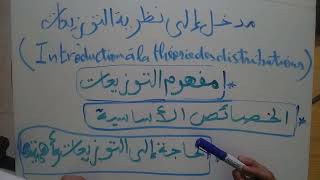 مدخل إلى نظرية التوزيعات
(Introduction à la théorie des distributions)
1* مفهوم التوزيعات
* الخصائص الأساسية
* الحاجة إلى التوزيعات وأهميتها